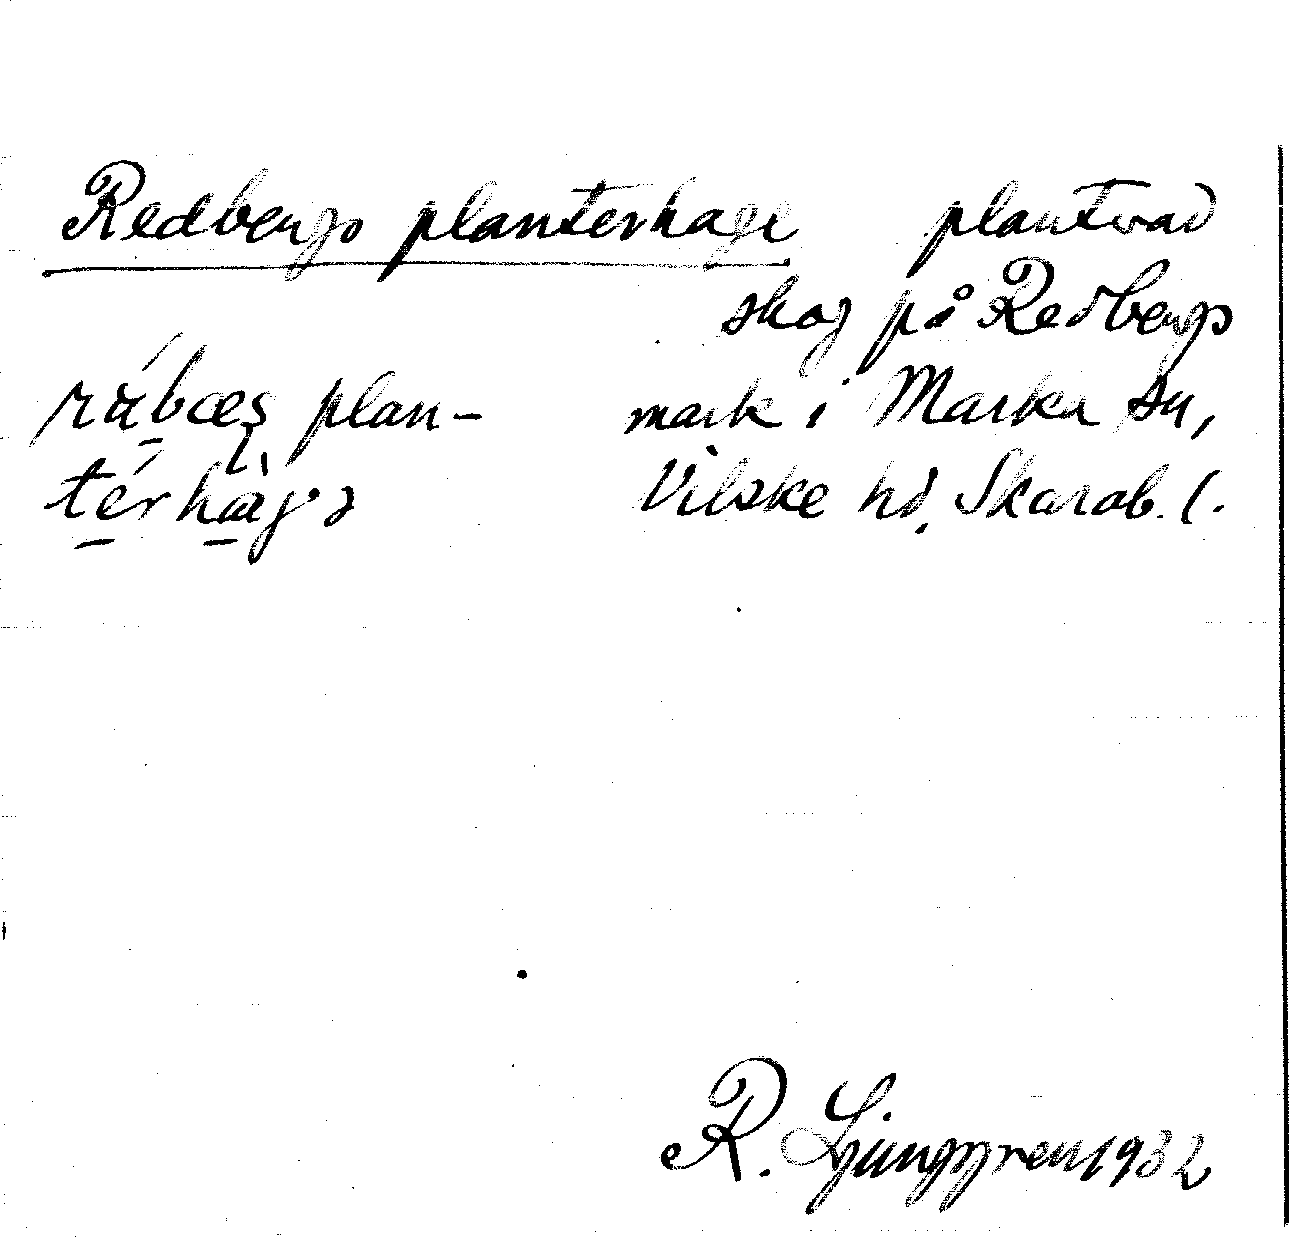 Redbergs planterhage plantrad
skog på Redbergs
mark i Marka sn,
Vilske hd. Skarab. l.
plan-
R. Ljunggren 1932